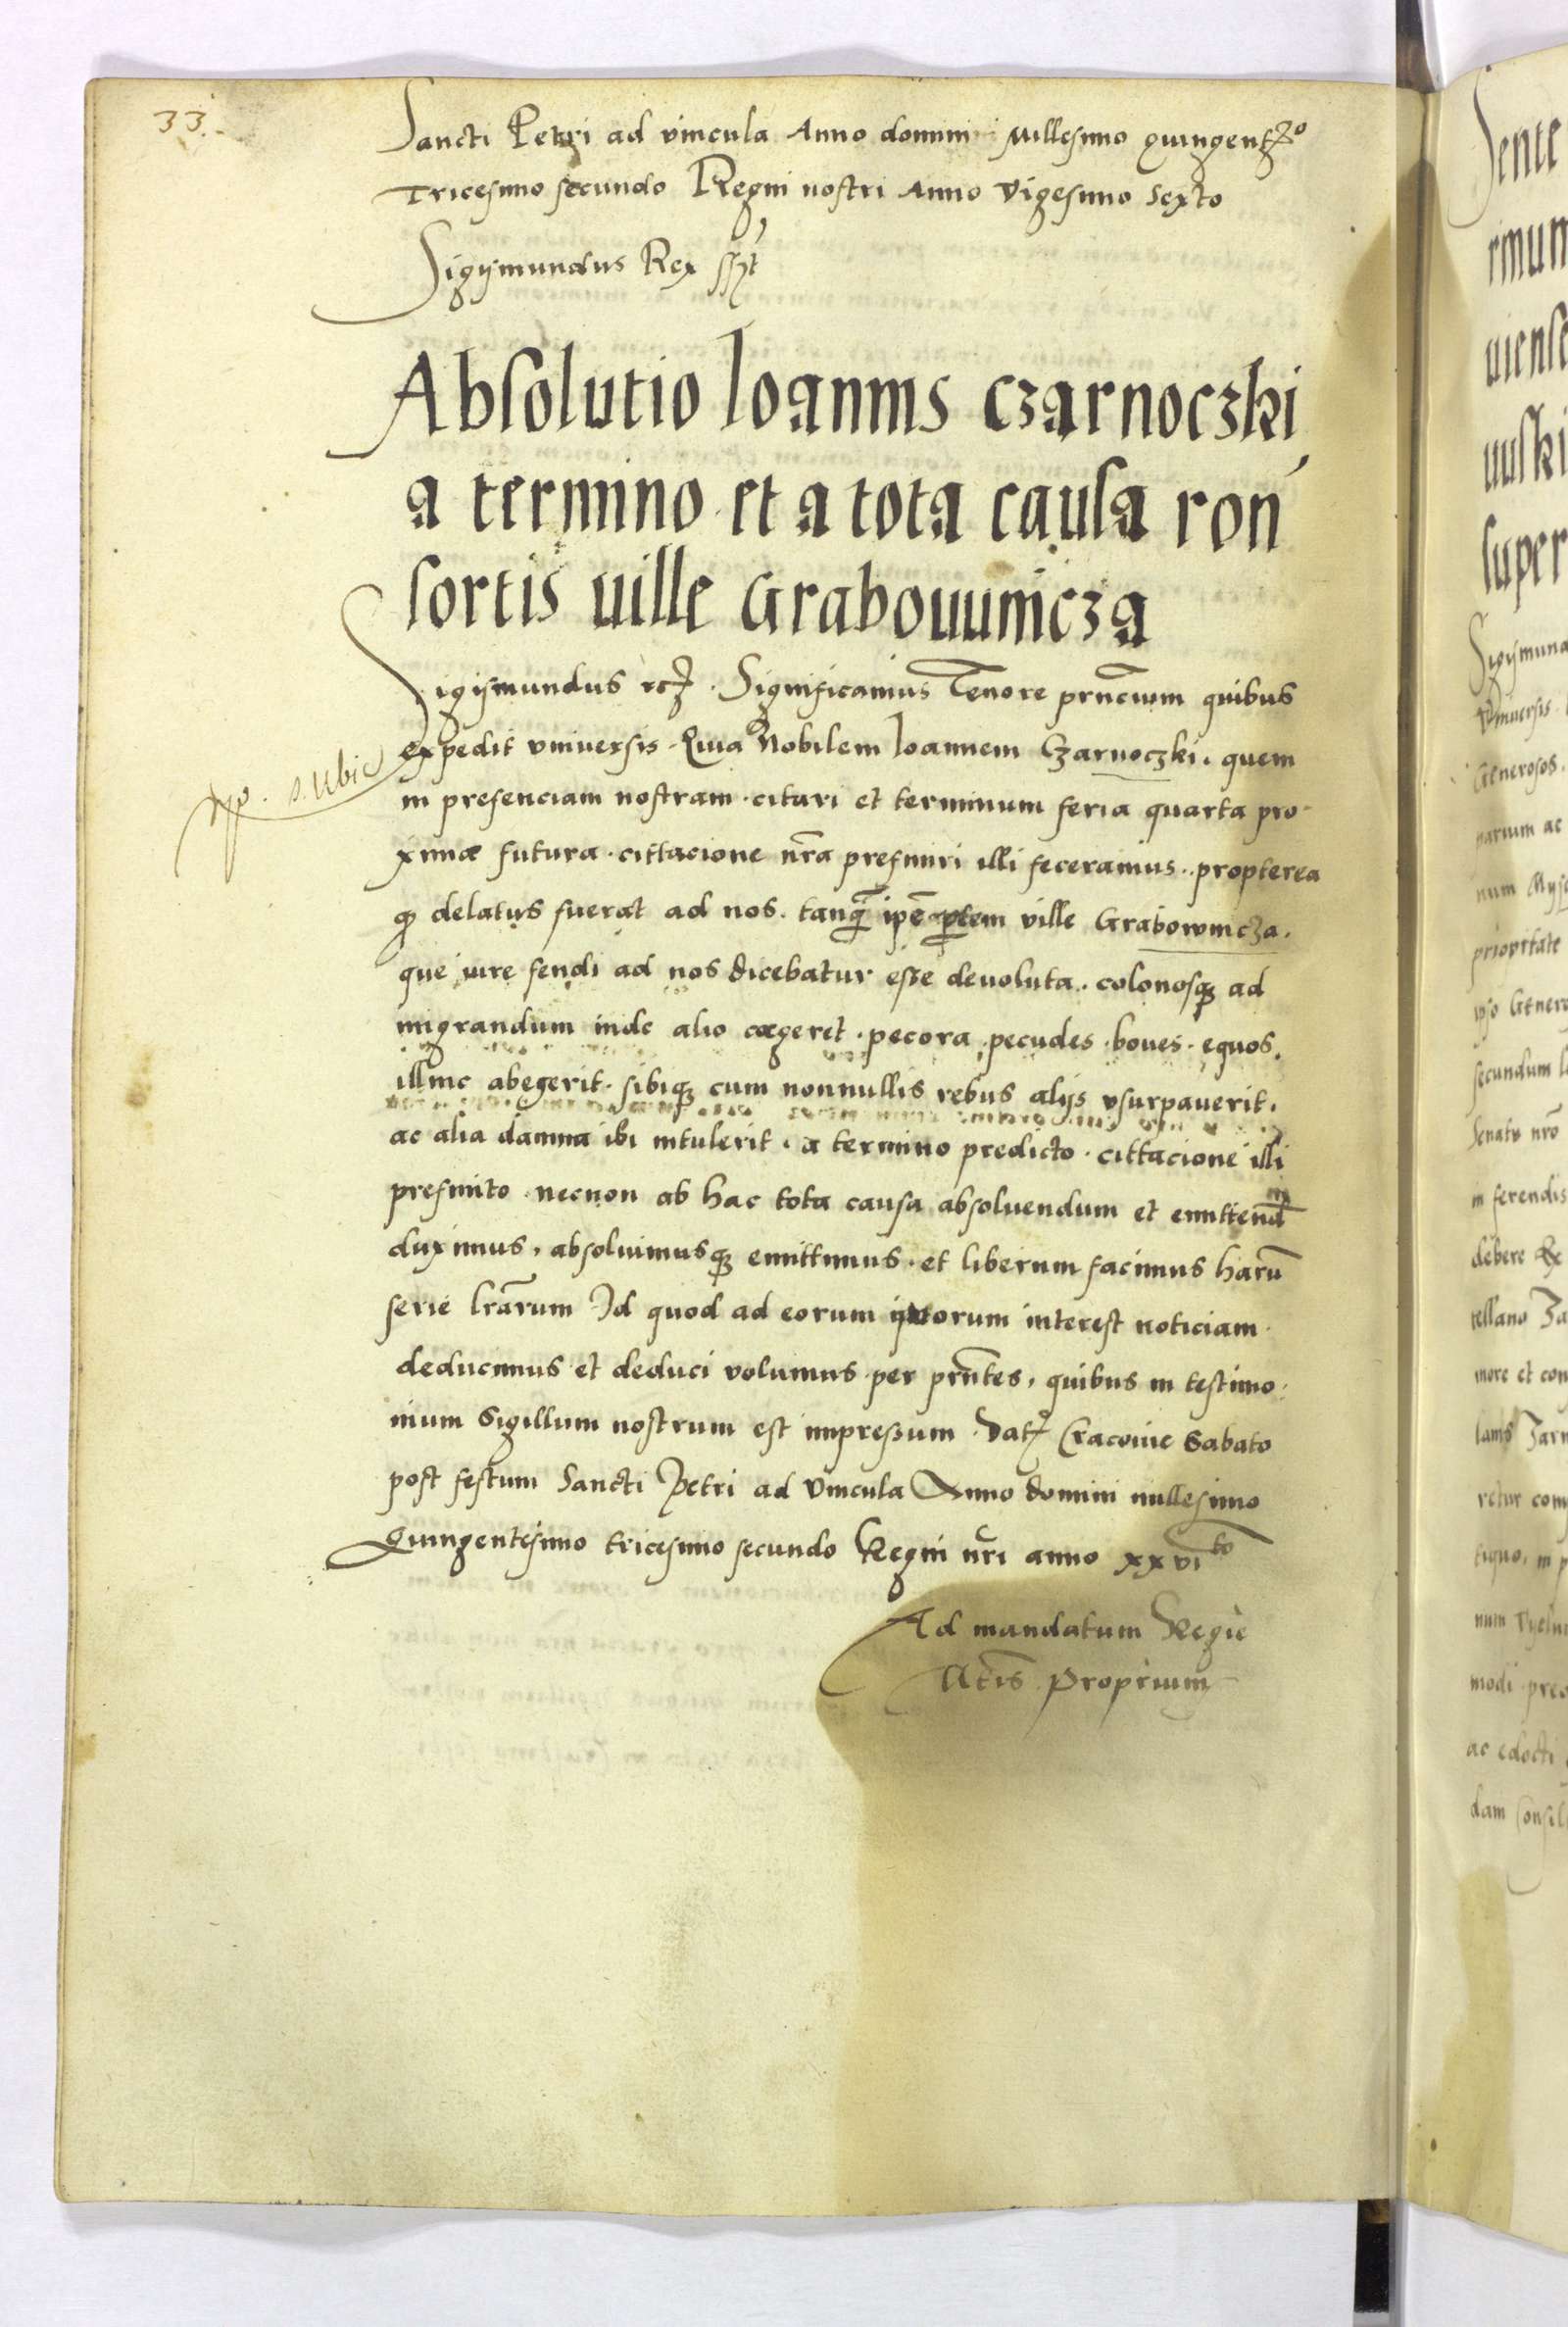 33.
Sancti Petri ad vincula Anno domini Millesimo quingentᵒ
Tricesimo secundo Regni nostri Anno Vigesimo Sexto
Sigismundus Rex sst
Absolutio Ioannis Czarnoczki
a termino et a tota causa ron
sortis uille Grabouunicza
Sigismundus etc. Significamus Tenore prncium quibus
expedit vniuersis. Quia Nobilem Ioannem Czarnoczki. quem
in presenciam nostram. citari et terminum feria quarta pro-
xima futura. cittacione nra prefiniri illi feceramus. propterea
q delatus fuerat ad nos. tanq ipe ptem ville Grabownicza.
que iure feudi ad nos dicebatur esse deuoluta. colonosq ad
migrandum inde alio cogeret. pecora. pecudes. boues. equos.
illinc abegerit. sibiq cum nonnullis rebus alijs vsurpauerit.
ac alia damna ibi intulerit. a termino predicto. cittacione illi
prefinito. necnon ab hac tota causa absoluendum et emittend
duximus. absoluimusq emittimus. et liberum facimus haru
serie lrarum Id quod ad eorum quorum interest noticiam
deducimus et deduci volumus per prntes, quibus in testimo-
nium Sigillum nostrum est impressum. Dat Cracouie Sabato
post festum Sancti Petri ad Vincula Anno domini millesimo
Quingentesimo tricesimo secundo Regni nri anno xxviᵗᵒ
Ad mandatum Regie
Mtis proprium
Sente
rmum
uiense
uuski
super
Sigismund
Vniuersis
Generosos.
narium ac
secundum
Senatu nro
in ferendis
debere
more et con
modi
dam Consil